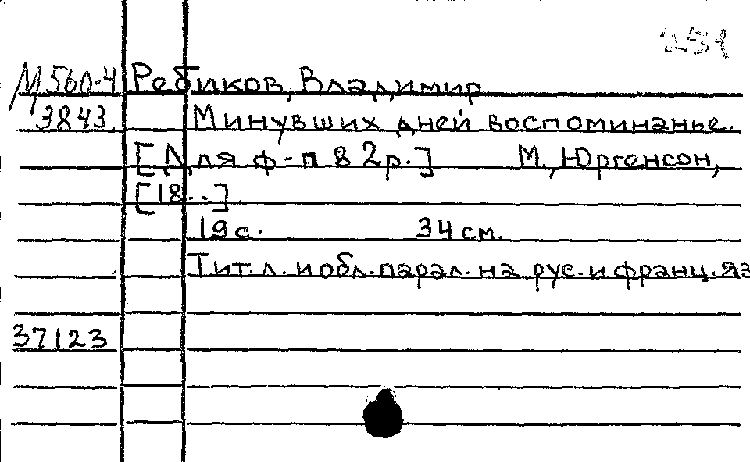 251
М 560-4 Ребиков, Владимир
3843. Минувших дней воспоминанье.
[Для ф-п в 2 р.] М., Юргенсон,
[18..]
19 с. 34 см.
Тит. л. и обл. парал. на рус. и франц. яз
37123